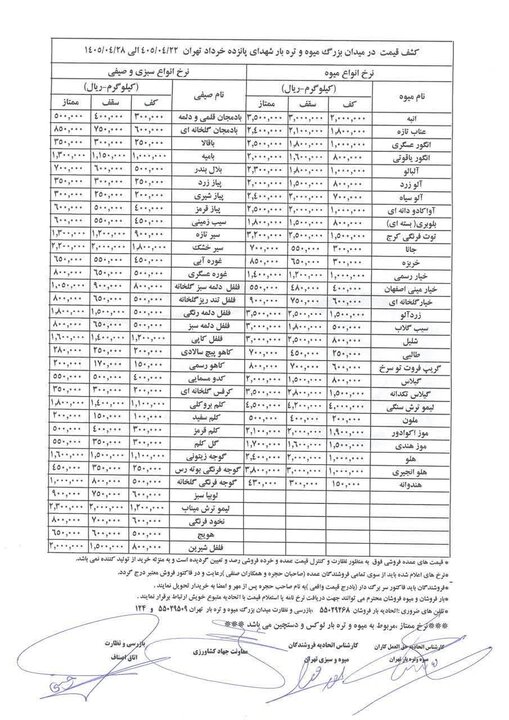 کشف قیمت در میدان بزرگ میوه و تره بار شهدای پانزده خرداد تهران ۴۰۵/۰۴/۲۲ الی ۱۴۰۵/۰۴/۲۸
نرخ انواع میوه نرخ انواع سبزی و صیفی
نام میوه (کیلوگرم-ریال) نام صیفی (کیلوگرم-ریال)
کف سقف ممتاز کف سقف ممتاز
انبه ۲,۰۰۰,۰۰۰ ۳,۰۰۰,۰۰۰ ۳,۵۰۰,۰۰۰ بادمجان قلمی و دلمه ۳۰۰,۰۰۰ ۴۰۰,۰۰۰ ۵۰۰,۰۰۰
عناب تازه ۱,۸۰۰,۰۰۰ ۲,۱۰۰,۰۰۰ ۲,۴۰۰,۰۰۰ بادمجان گلخانه ای ۶۰۰,۰۰۰ ۷۵۰,۰۰۰ ۸۵۰,۰۰۰
انگور عسگری ۱,۰۰۰,۰۰۰ ۱,۸۰۰,۰۰۰ ۲,۵۰۰,۰۰۰ باقالا ۲۵۰,۰۰۰ ۳۰۰,۰۰۰ ۳۵۰,۰۰۰
انگور یاقوتی ۸۰۰,۰۰۰ ۱,۶۰۰,۰۰۰ ۲,۰۰۰,۰۰۰ بامیه ۱,۰۰۰,۰۰۰ ۱,۱۵۰,۰۰۰ ۱,۳۰۰,۰۰۰
آلبالو ۱,۰۰۰,۰۰۰ ۱,۸۰۰,۰۰۰ ۲,۵۰۰,۰۰۰ بلال بندر ۵۰۰,۰۰۰ ۶۰۰,۰۰۰ ۷۰۰,۰۰۰
آلو زرد ۸۰۰,۰۰۰ ۱,۵۰۰,۰۰۰ ۲,۰۰۰,۰۰۰ پیاز زرد ۲۵۰,۰۰۰ ۳۰۰,۰۰۰ ۳۵۰,۰۰۰
آلو سیاه ۷۰۰,۰۰۰ ۲,۰۰۰,۰۰۰ ۲,۴۰۰,۰۰۰ پیاز شیری ۲۰۰,۰۰۰ ۲۵۰,۰۰۰ ۳۰۰,۰۰۰
آواکادو دانه ای ۱,۰۰۰,۰۰۰ ۲,۰۰۰,۰۰۰ ۲,۵۰۰,۰۰۰ پیاز قرمز ۴۰۰,۰۰۰ ۵۰۰,۰۰۰ ۶۰۰,۰۰۰
بلوبری( بسته ای) ۸۰۰,۰۰۰ ۱,۵۰۰,۰۰۰ ۱,۸۰۰,۰۰۰ سیب زمینی ۴۵۰,۰۰۰ ۵۰۰,۰۰۰ ۶۰۰,۰۰۰
توت فرنگی کرج ۱,۵۰۰,۰۰۰ ۲,۵۰۰,۰۰۰ ۳,۳۰۰,۰۰۰ سیر تازه ۹۰۰,۰۰۰ ۱,۲۰۰,۰۰۰ ۱,۳۰۰,۰۰۰
جانا ۳۰۰,۰۰۰ ۵۵۰,۰۰۰ ۷۰۰,۰۰۰ سیر خشک ۱,۸۰۰,۰۰۰ ۲,۰۰۰,۰۰۰ ۲,۲۰۰,۰۰۰
خربزه ۳۰۰,۰۰۰ ۶۵۰,۰۰۰ ۸۵۰,۰۰۰ غوره آبی ۴۵۰,۰۰۰ ۵۵۰,۰۰۰ ۶۵۰,۰۰۰
خیار رسمی ۱,۰۰۰,۰۰۰ ۱,۲۰۰,۰۰۰ ۱,۴۰۰,۰۰۰ غوره عسگری ۵۰۰,۰۰۰ ۶۵۰,۰۰۰ ۸۰۰,۰۰۰
خیار مینی اصفهان ۴۰۰,۰۰۰ ۴۸۰,۰۰۰ ۵۵۰,۰۰۰ فلفل دلمه سبز گلخانه ۸۰۰,۰۰۰ ۹۰۰,۰۰۰ ۱,۰۵۰,۰۰۰
خیارگلخانه ای ۶۰۰,۰۰۰ ۷۵۰,۰۰۰ ۹۰۰,۰۰۰ فلفل تند ریزگلخانه ۵۰۰,۰۰۰ ۶۵۰,۰۰۰ ۸۰۰,۰۰۰
زردآلو ۱,۵۰۰,۰۰۰ ۲,۵۰۰,۰۰۰ ۳,۵۰۰,۰۰۰ فلفل دلمه رنگی ۱,۰۰۰,۰۰۰ ۱,۵۰۰,۰۰۰ ۱,۸۰۰,۰۰۰
سیب گلاب ۵۰۰,۰۰۰ ۱,۸۰۰,۰۰۰ ۳,۰۰۰,۰۰۰ فلفل دلمه سبز ۵۰۰,۰۰۰ ۶۵۰,۰۰۰ ۸۰۰,۰۰۰
شلیل ۸۰۰,۰۰۰ ۲,۵۰۰,۰۰۰ ۳,۰۰۰,۰۰۰ فلفل کاپی ۱,۲۰۰,۰۰۰ ۱,۴۰۰,۰۰۰ ۱,۶۰۰,۰۰۰
طالبی ۲۵۰,۰۰۰ ۴۵۰,۰۰۰ ۷۰۰,۰۰۰ کاهو پیچ سالادی ۲۰۰,۰۰۰ ۲۵۰,۰۰۰ ۲۸۰,۰۰۰
گریپ فروت تو سرخ ۶۰۰,۰۰۰ ۷۰۰,۰۰۰ ۸۰۰,۰۰۰ کاهو رسمی ۱۵۰,۰۰۰ ۱۷۰,۰۰۰ ۲۰۰,۰۰۰
گیلاس ۸۰۰,۰۰۰ ۱,۵۰۰,۰۰۰ ۲,۰۰۰,۰۰۰ کدو مسمایی ۴۰۰,۰۰۰ ۵۰۰,۰۰۰ ۵۵۰,۰۰۰
گیلاس تکدانه ۱,۵۰۰,۰۰۰ ۲,۸۰۰,۰۰۰ ۳,۵۰۰,۰۰۰ کرفس گلخانه ای ۲۰۰,۰۰۰ ۳۰۰,۰۰۰ ۳۵۰,۰۰۰
لیمو ترش سنگی ۴,۰۰۰,۰۰۰ ۴,۲۰۰,۰۰۰ ۴,۵۰۰,۰۰۰ کلم بروکلی ۱,۱۰۰,۰۰۰ ۱,۴۰۰,۰۰۰ ۱,۸۰۰,۰۰۰
ملون ۲۰۰,۰۰۰ ۴۰۰,۰۰۰ ۵۰۰,۰۰۰ کلم سفید ۱۰۰,۰۰۰ ۱۵۰,۰۰۰ ۲۰۰,۰۰۰
موز اکوادور ۱,۹۰۰,۰۰۰ ۲,۰۰۰,۰۰۰ ۲,۱۰۰,۰۰۰ کلم قرمز ۳۰۰,۰۰۰ ۴۰۰,۰۰۰ ۵۰۰,۰۰۰
موز هندی ۱,۵۰۰,۰۰۰ ۱,۶۰۰,۰۰۰ ۱,۷۰۰,۰۰۰ گل کلم ۳۵۰,۰۰۰ ۴۵۰,۰۰۰ ۵۵۰,۰۰۰
هلو ۱,۰۰۰,۰۰۰ ۱,۶۰۰,۰۰۰ ۲,۴۰۰,۰۰۰ گوجه زیتونی ۱,۱۰۰,۰۰۰ ۱,۵۰۰,۰۰۰ ۱,۶۰۰,۰۰۰
هلو انجیری ۱,۰۰۰,۰۰۰ ۳,۰۰۰,۰۰۰ ۳,۸۰۰,۰۰۰ گوجه فرنگی بوته رس ۲۵۰,۰۰۰ ۳۵۰,۰۰۰ ۴۵۰,۰۰۰
هندوانه ۱۵۰,۰۰۰ ۳۰۰,۰۰۰ ۴۳۰,۰۰۰ گوجه فرنگی گلخانه ۵۰۰,۰۰۰ ۸۰۰,۰۰۰ ۱,۰۰۰,۰۰۰
لوبیا سبز ۶۰۰,۰۰۰ ۷۵۰,۰۰۰ ۹۰۰,۰۰۰
لیمو ترش میناب ۱,۲۰۰,۰۰۰ ۲,۰۰۰,۰۰۰ ۲,۳۰۰,۰۰۰
نخود فرنگی ۶۰۰,۰۰۰ ۷۰۰,۰۰۰
هویج ۵۰۰,۰۰۰ ۶۰۰,۰۰۰ ۶۵۰,۰۰۰
فلفل شیرین ۸۰۰,۰۰۰ ۱,۵۰۰,۰۰۰ ۲,۰۰۰,۰۰۰
- قیمت های عمده فروشی فوق به منظور نظارت و کنترل قیمت عمده و خرده فروشی رصد و تعیین گردیده است و به منزله خرید از تولید کننده نمی باشد.
-نرخ های اعلام شده باید از سوی تمامی فروشندگان عمده (صاحبان حجره و همکاران صنفی)رعایت و در فاکتور فروش معتبر درج گردد.
-فروشندگان باید فاکتور سر برگ دار (بادرج قیمت واقعی )به نام صاحب حجره پس از مهر و امضا به خریدار تحویل نمایند .
- بار فروشان و میوه فروشان محترم می توانند جهت دریافت نرخ نامه یا استعلام قیمت با اتحادیه متبوع خویش ارتباط برقرار نمایند .
-تلفن های ضروری :اتحادیه بار فروشان ۵۵۰۲۹۲۶۸ -بازرسی و نظارت میدان بزرگ میوه و تره بار تهران ۵۵۰۲۹۵۰۹ و ۱۲۴
***نرخ ممتاز ،مربوط به میوه و تره بار لوکس و دستچین می باشد ***
کارشناس اتحادیه حق العمل کاران کارشناس اتحادیه فروشندگان معاونت جهاد کشاورزی بازرسی و نظارت
میوه وتره بار تهران میوه و سبزی تهران اتاق اصناف